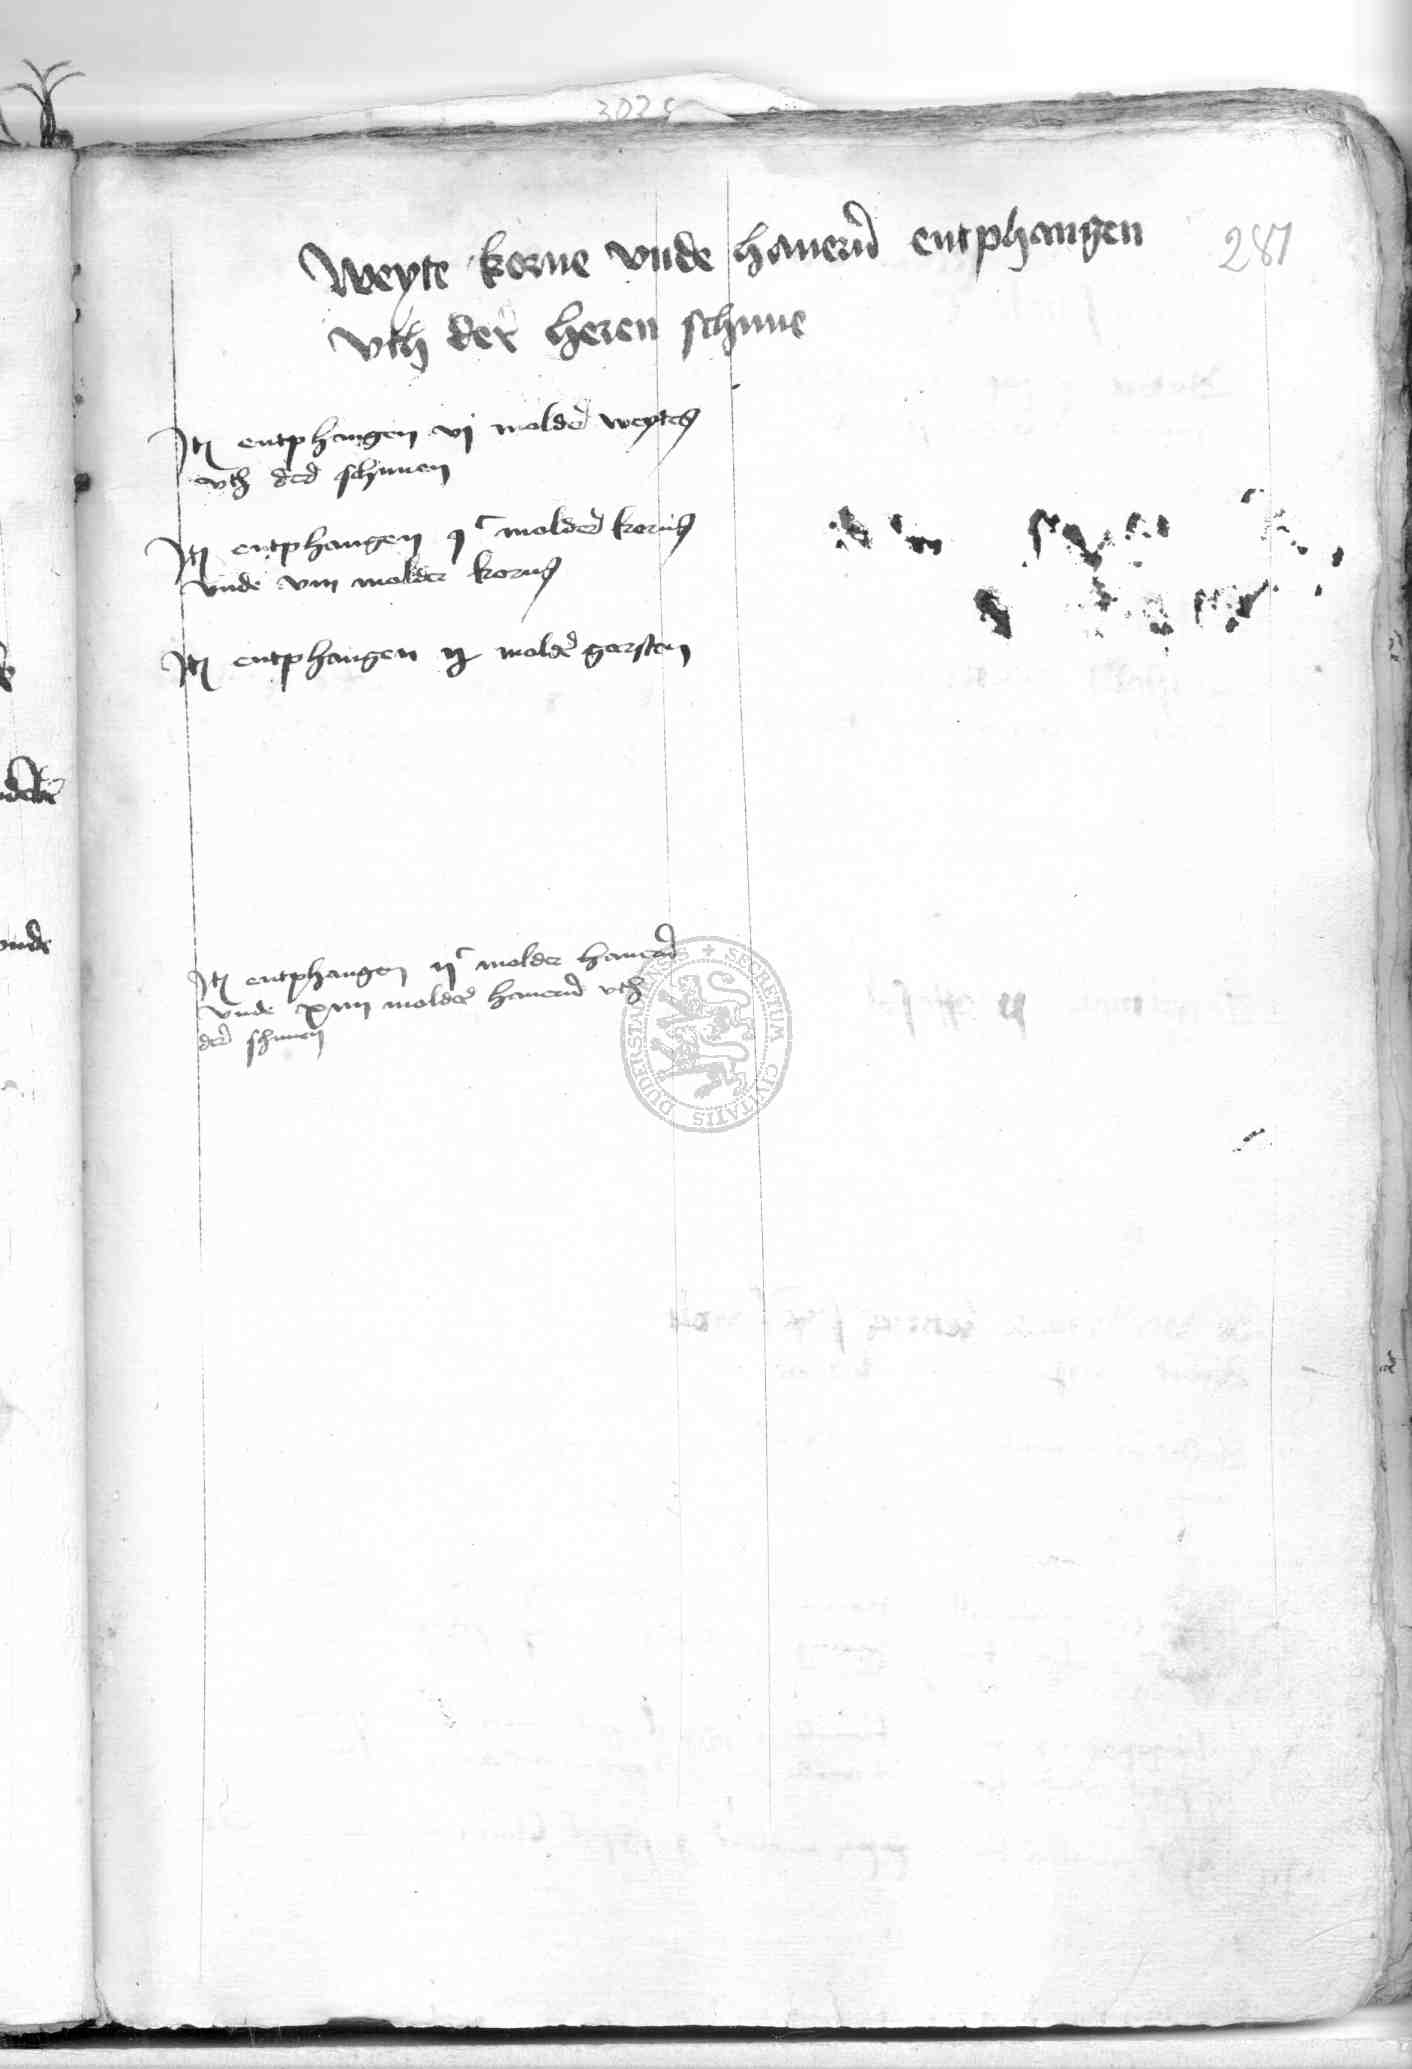 3029
281
Weyte korne vnde haueru̅ entphangen
vth der heren schune
It̅ entphangen vj molder̅ weytes
vth der̅ schunen
It̅ entphangen jᶜ molder̅ korns
vnde viii molder korns
It̅ entphangen ij molder̅ gersten
It̅ entphangen ijᶜ molder hauern̅
vnde xiiii molder̅ hauern̅ vth
der̅ schunen
SECRETUM CIVITATIS DUDERSTADENSIS
vnde